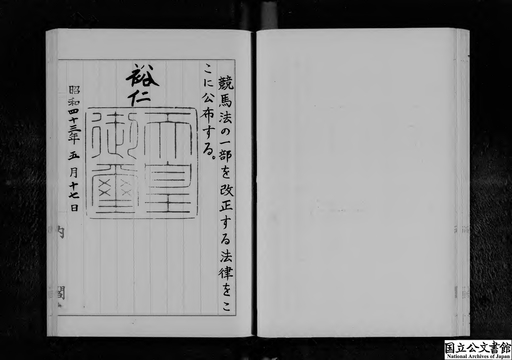 競馬法の一部を改正する法律をこ
こに公布する。
裕仁
天皇
御璽
昭和四十三年五月十七日
内閣
国立公文書館
National Archives of Japan